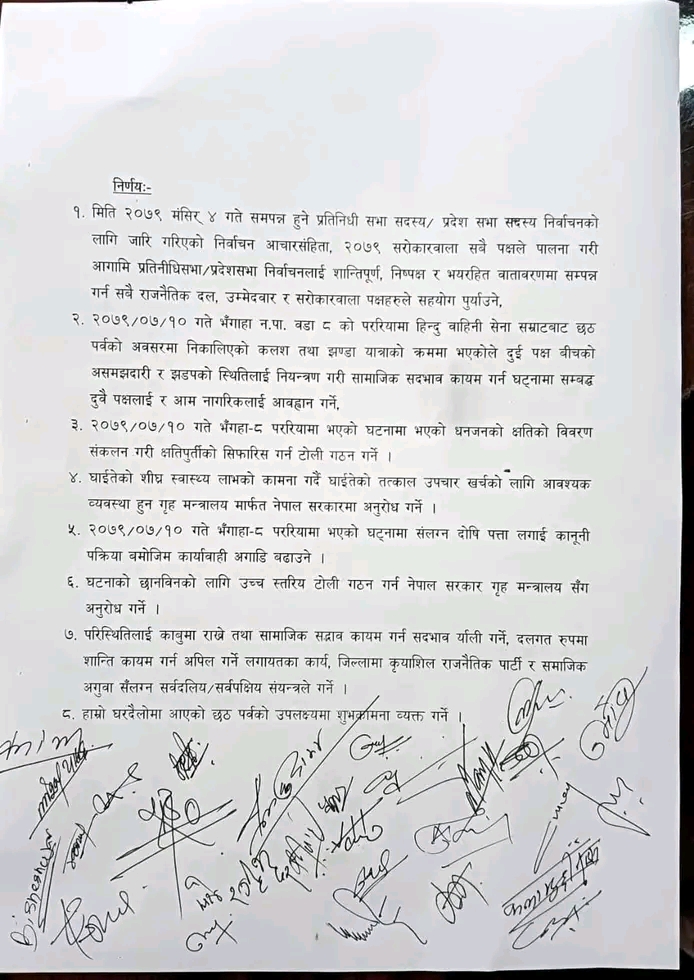 निर्णयः-
१. मिति २०७९ मंसिर ४ गते समपन्न हुने प्रतिनिधी सभा सदस्य/ प्रदेश सभा सदस्य निर्वाचनको
लागि जारि गरिएको निर्वाचन आचारसंहिता, २०७९ सरोकारवाला सबै पक्षले पालना गरी
आगामि प्रतिनीधिसभा/प्रदेशसभा निर्वाचनलाई शान्तिपूर्ण, निष्पक्ष र भयरहित वातावरणमा सम्पन्न
गर्न सबै राजनैतिक दल, उम्मेदवार र सरोकारवाला पक्षहरुले सहयोग पुर्याउने,
२. २०७९/०७/१० गते भँगाहा न.पा. वडा ८ को पररियामा हिन्दु वाहिनी सेना सम्राटबाट छठ
पर्वको अवसरमा निकालिएको कलश तथा झण्डा यात्राको क्रममा भएकोले दुई पक्ष बीचको
असमझदारी र झडपको स्थितिलाई नियन्त्रण गरी सामाजिक सदभाव कायम गर्न घट्नामा सम्बद्ध
दुवै पक्षलाई र आम नागरिकलाई आवह्वान गर्ने,
३. २०७९/०७/१० गते भँगहा-८ पररियामा भएको घटनामा भएको धनजनको क्षतिको विवरण
संकलन गरी क्षतिपुर्तीको सिफारिस गर्न टोली गठन गर्ने ।
४. घाईतेको शीघ्र स्वास्थ्य लाभको कामना गर्दै घाईतेको तत्काल उपचार खर्चको लागि आवश्यक
व्यवस्था हुन गृह मन्त्रालय मार्फत नेपाल सरकारमा अनुरोध गर्ने ।
५. २०७९/०७/१० गते भँगाहा-८ पररियामा भएको घट्नामा संलग्न दोषि पत्ता लगाई कानूनी
पक्रिया बमोजिम कार्यावाही अगाडि बढाउने ।
६. घटनाको छानविनको लागि उच्च स्तरिय टोली गठन गर्न नेपाल सरकार गृह मन्त्रालय सँग
अनुरोध गर्ने ।
७. परिस्थितिलाई काबुमा राख्ने तथा सामाजिक सद्भाव कायम गर्न सदभाव र्याली गर्ने, दलगत रुपमा
शान्ति कायम गर्न अपिल गर्ने लगायतका कार्य, जिल्लामा कृयाशिल राजनैतिक पार्टी र समाजिक
अगुवा सँलग्न सर्वदलिय/सर्वपक्षिय संयन्त्रले गर्ने ।
८. हाम्रो घरदैलोमा आएको छठ पर्वको उपलक्ष्यमा शुभकामना व्यक्त गर्ने ।